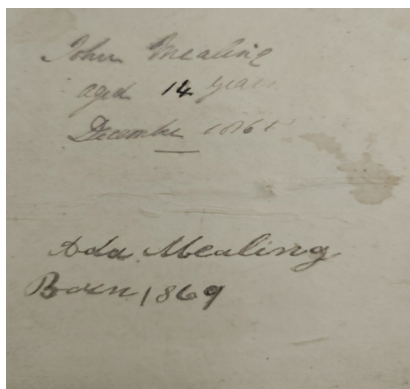 John Mealing
aged 14 years
December 1861
Ada Mealing
Born 1869